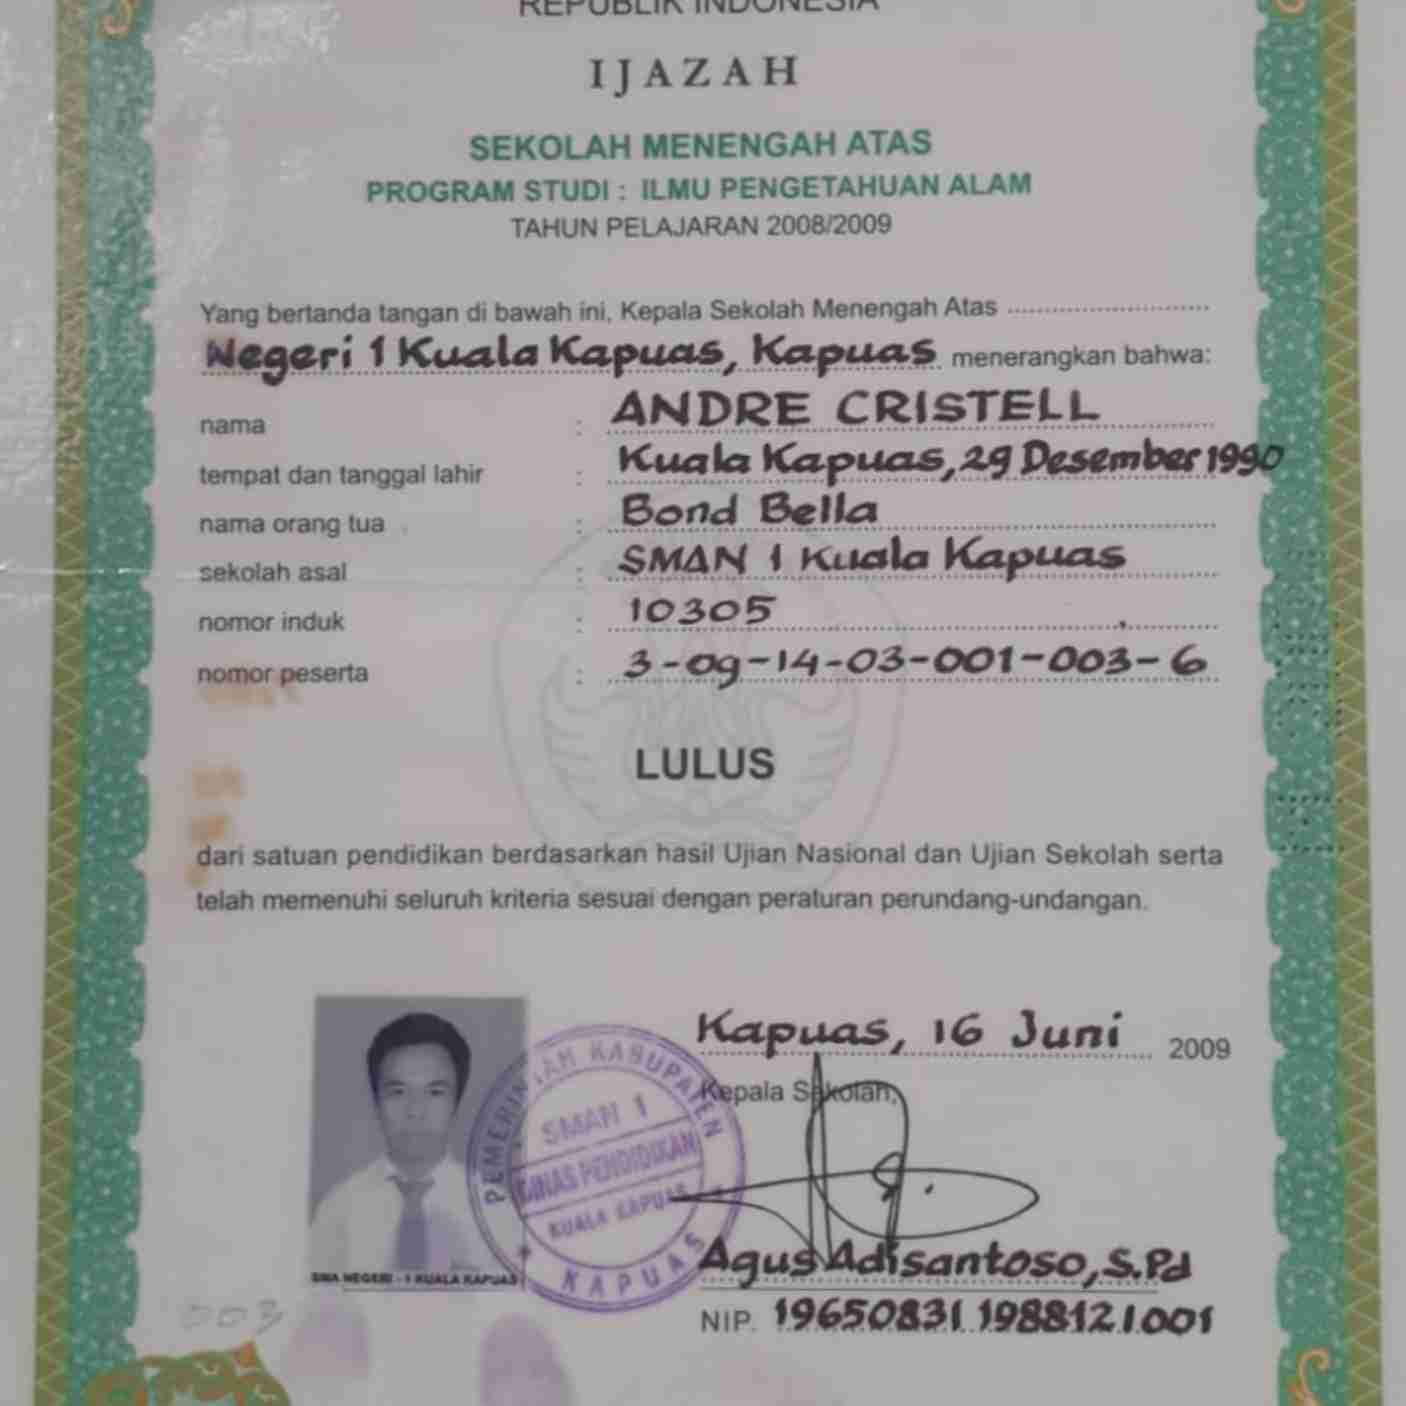 REPUBLIK INDONESIA
IJAZAH
SEKOLAH MENENGAH ATAS
PROGRAM STUDI : ILMU PENGETAHUAN ALAM
TAHUN PELAJARAN 2008/2009
Yang bertanda tangan di bawah ini, Kepala Sekolah Menengah Atas
Negeri 1 Kuala Kapuas, Kapuas menerangkan bahwa:
nama : ANDRE CRISTELL
tempat dan tanggal lahir : Kuala Kapuas, 29 Desember 1990
nama orang tua : Bond Bella
sekolah asal : SMAN 1 Kuala Kapuas
nomor induk : 10305
nomor peserta : 3-09-14-03-001-003-6
LULUS
dari satuan pendidikan berdasarkan hasil Ujian Nasional dan Ujian Sekolah serta
telah memenuhi seluruh kriteria sesuai dengan peraturan perundang-undangan.
Kapuas, 16 Juni 2009
Kepala Sekolah,
PEMERINTAH KABUPATEN
SMAN 1
DINAS PENDIDIKAN
KUALA KAPUAS
KAPUAS
SMA NEGERI - 1 KUALA KAPUAS
Agus Adisantoso, S.Pd
NIP. 19650831 198812 1 001
003